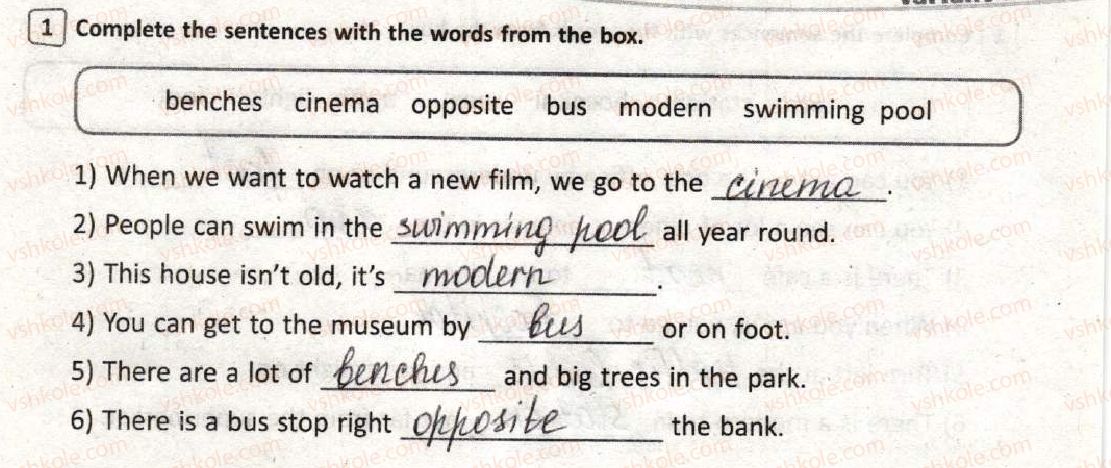 1 Complete the sentences with the words from the box.
benches cinema opposite bus modern swimming pool
1) When we want to watch a new film, we go to the cinema.
2) People can swim in the swimming pool all year round.
3) This house isn't old, it's modern.
4) You can get to the museum by bus or on foot.
5) There are a lot of benches and big trees in the park.
6) There is a bus stop right opposite the bank.